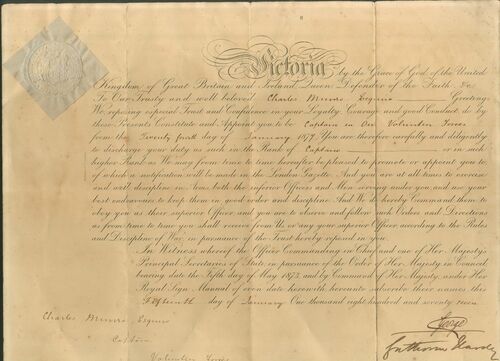 Victoria by the Grace of God of the United
Kingdom of Great Britain and Ireland, Queen, Defender of the Faith, &c.
To Our Trusty and well beloved Charles Munro Esquire Greeting:
We reposing especial Trust and Confidence in your Loyalty, Courage, and good Conduct, do by
these Presents Constitute and Appoint you to be Captain in Our Volunteer Force
from the Twenty fourth day of January 1877. You are therefore carefully and diligently
to discharge your duty as such in the Rank of Captain or in such
higher Rank as We may from time to time hereafter be pleased to promote or appoint you to,
of which a notification will be made in the London Gazette. And you are at all times to exercise
and well discipline in Arms both the inferior Officers and Men serving under you and use your
best endeavours to keep them in good order and discipline. And We do hereby Command them to
obey you as their superior Officer, and you to observe and follow such Orders and Directions
as from time to time you shall receive from Us or any your superior Officer, according to the Rules
and Discipline of War, in pursuance of the Trust hereby reposed in you.
In Witness whereof the Officer Commanding in Chief and one of Her Majesty's
Principal Secretaries of State in pursuance of the Order of Her Majesty in Council
bearing date the Fifth day of May 1873 and by Command of Her Majesty under Her
Royal Sign Manual of even date herewith hereunto subscribe their names this
Fifteenth day of January One thousand eight hundred and seventy seven
George
Gathorne Hardy
Charles Munro Esquire
Captain
Volunteer Force